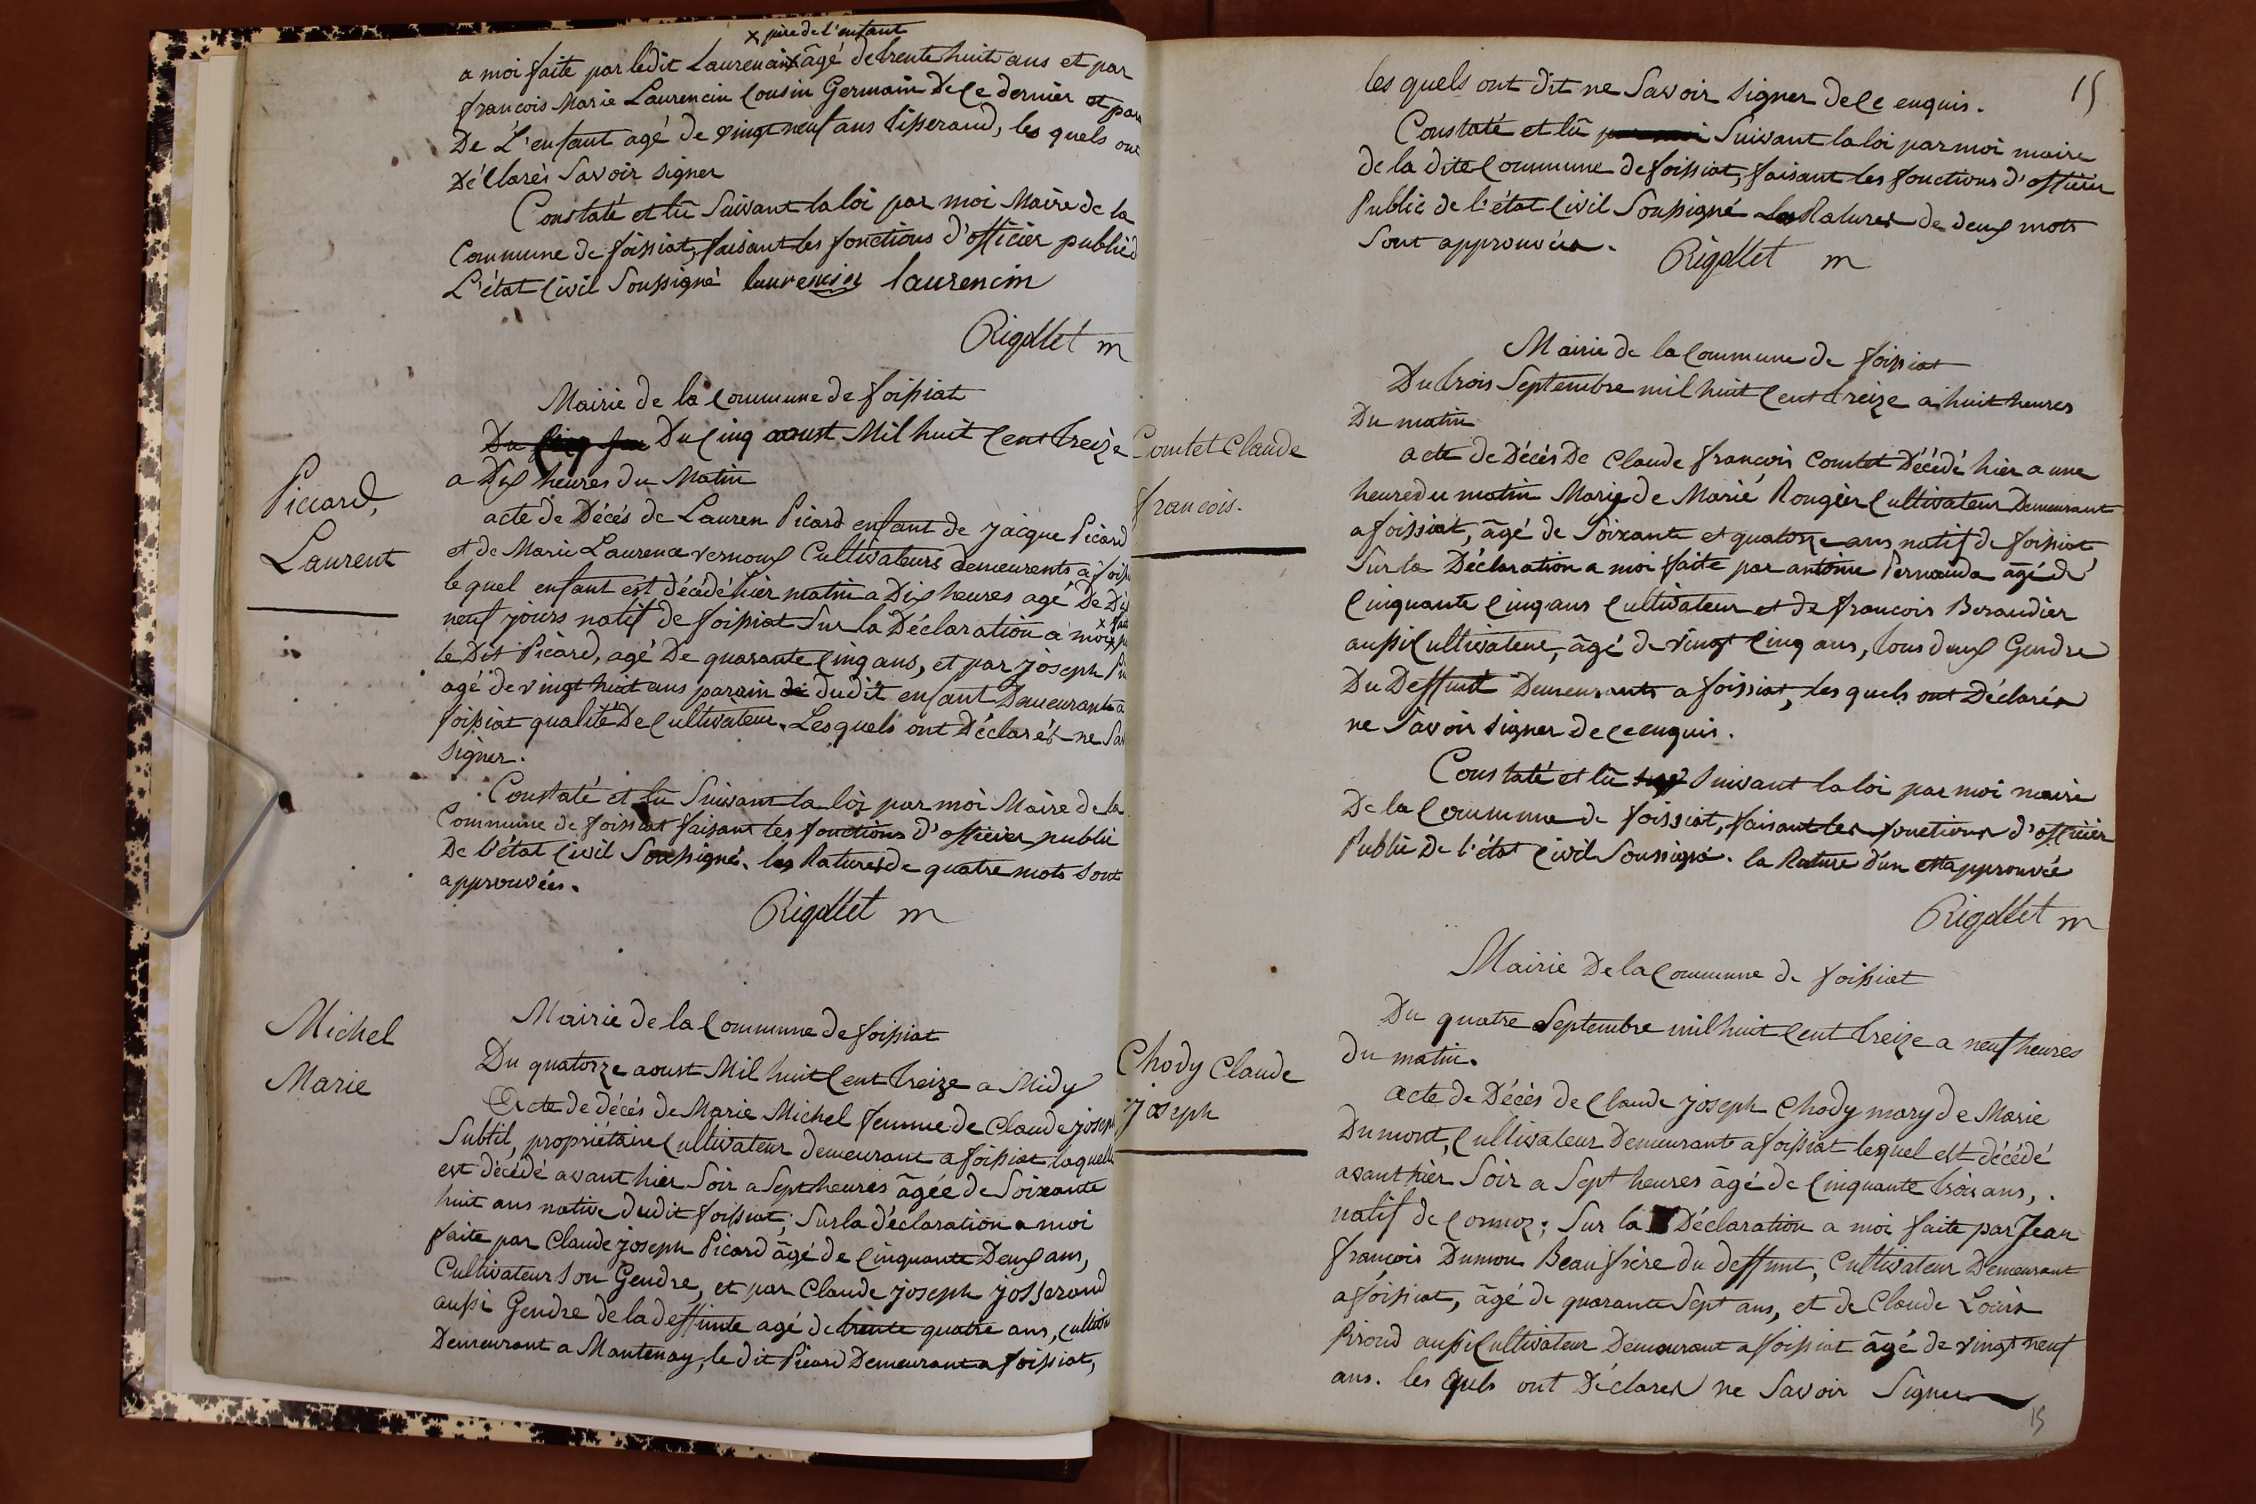 x père de l'enfant
a moi faite par ledit Laurencin x âgé de trente huit ans et par
françois Marie Laurencin Cousin Germain De Ce dernier et par
De L'enfant agé de vingt neuf ans tisserand, les quels ont
Déclarés Savoir signer
Constaté et lû Suivant la loi par moi Maire de la
Commune de foissiat, faisant les fonctions d'officier public d
L'état Civil Soussigné laurencin laurencin
Rigollet m
Mairie de la Commune de foissiat
Du Cinq Du Cinq aoust Mil huit Cent treize
a Dix heures du Matin
Piccard,
Laurent
acte de Décés de Lauren Picard enfant de jacque Picard
et de Marie Laurence vernoux Cultivateurs demeurents a foiss
le quel enfant est décédé hier matin a Dix heures agé De Dix
neuf jours natif de foissiat Sur la Déclaration a moi x
x faite
le Dit Picard, agé De quarante Cinq ans, et par joseph
agé de vingt huit ans parain de dudit enfant Demeurant a
foissiat qualité De Cultivateur. Lesquels ont Déclarés ne Sa
signer.
Constaté et lû Suivant la loi par moi Maire de la
Commune de foissiat faisant les fonctions d'officier public
De l'état Civil Soussigné. les Ratures de quatre mots sont
approuvées.
Rigollet m
Michel
Marie
Mairie de la Commune de foissiat
Du quatorze aoust Mil huit Cent treize a Midy
Acte de décés de Marie Michel femme de Claude joseph
Subtil, propriétaire Cultivateur demeurant a foissiat laquelle
est décédé avant hier Soir a Sept heures âgée de Soixante
huit ans native dudit foissiat; Sur la déclaration a moi
faite par Claude joseph Picard âgé de Cinquante Deux ans,
Cultivateur Son Gendre, et par Claude joseph josserand
aussi Gendre de la deffunte agé de trente quatre ans, Cultiv
Demeurant a Mantenay, le dit Picard Demeurant a foissiat,
15
les quels ont dit ne Savoir signer de Ce enquis.
Constaté et lû par moi Suivant la loi par moi maire
de la dite Commune de foissiat, faisant les fonctions d'officier
Public de l'état Civil Soussigné les Ratures de deux mots
Sont approuvées.
Rigollet m
Mairie de la Commune de foissiat
Du trois Septembre mil huit Cent treize a huit heures
Du matin
Comtet Claude
françois.
acte de Décés De Claude françois Comtet Décédé hier a une
heure du matin Marie de Marie Rougier Cultivateur Demeurant
a foissiat, âgé de Soixante et quatorze ans natif de foissiat
Sur la Déclaration a moi faite par antoine Pernauda âgé de
Cinquante Cinq ans Cultivateur et de francois Beraudier
aussi Cultivateur, âgé de vingt Cinq ans, tous deux Gendre
Du Deffunt Demeurants a foissiat, les quels ont Déclarés
ne Savoir signer de Ce enquis.
Constaté et lû Suivant la loi par moi maire
De la Commune de foissiat, faisant les fonctions d'officier
Public De l'état Civil Soussigné. la Rature d'un est approuvée
Rigollet m
Mairie De la Commune de foissiat
Du quatre Septembre mil huit Cent treize a neuf heures
du matin.
Chody Claude
joseph
acte de Décés de Claude joseph Chody mary de Marie
Dumont, Cultivateur Demeurant a foissiat lequel est décédé
avant hier Soir a Sept heures âgé de Cinquante trois ans,
natif de Cormoz; Sur la Déclaration a moi faite par Jean
françois Dumon Beau frère du deffunt, Cultivateur Demeurant
a foissiat, âgé de quarante Sept ans, et de Claude Louis
Piroud aussi Cultivateur Demeurant a foissiat âgé de vingt neuf
ans. les quels ont Déclarés ne Savoir Signer
15